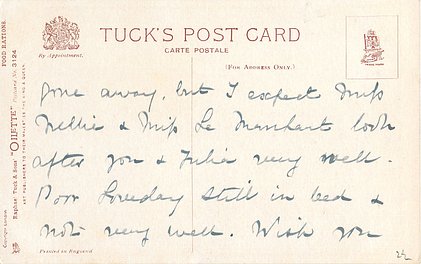 TUCK'S POST CARD
CARTE POSTALE
By Appointment.
(FOR ADDRESS ONLY.)
gone away, but I expect Miss
Nellie & Miss Le Marchant look
after you & Julia very well.
Poor Loveday still in bed &
not very well. Wish you
Printed in England
FOOD RATIONS.
Raphael Tuck & Sons' "OILETTE" Postcard No. 3124
ART PUBLISHERS TO THEIR MAJESTIES THE KING & QUEEN.